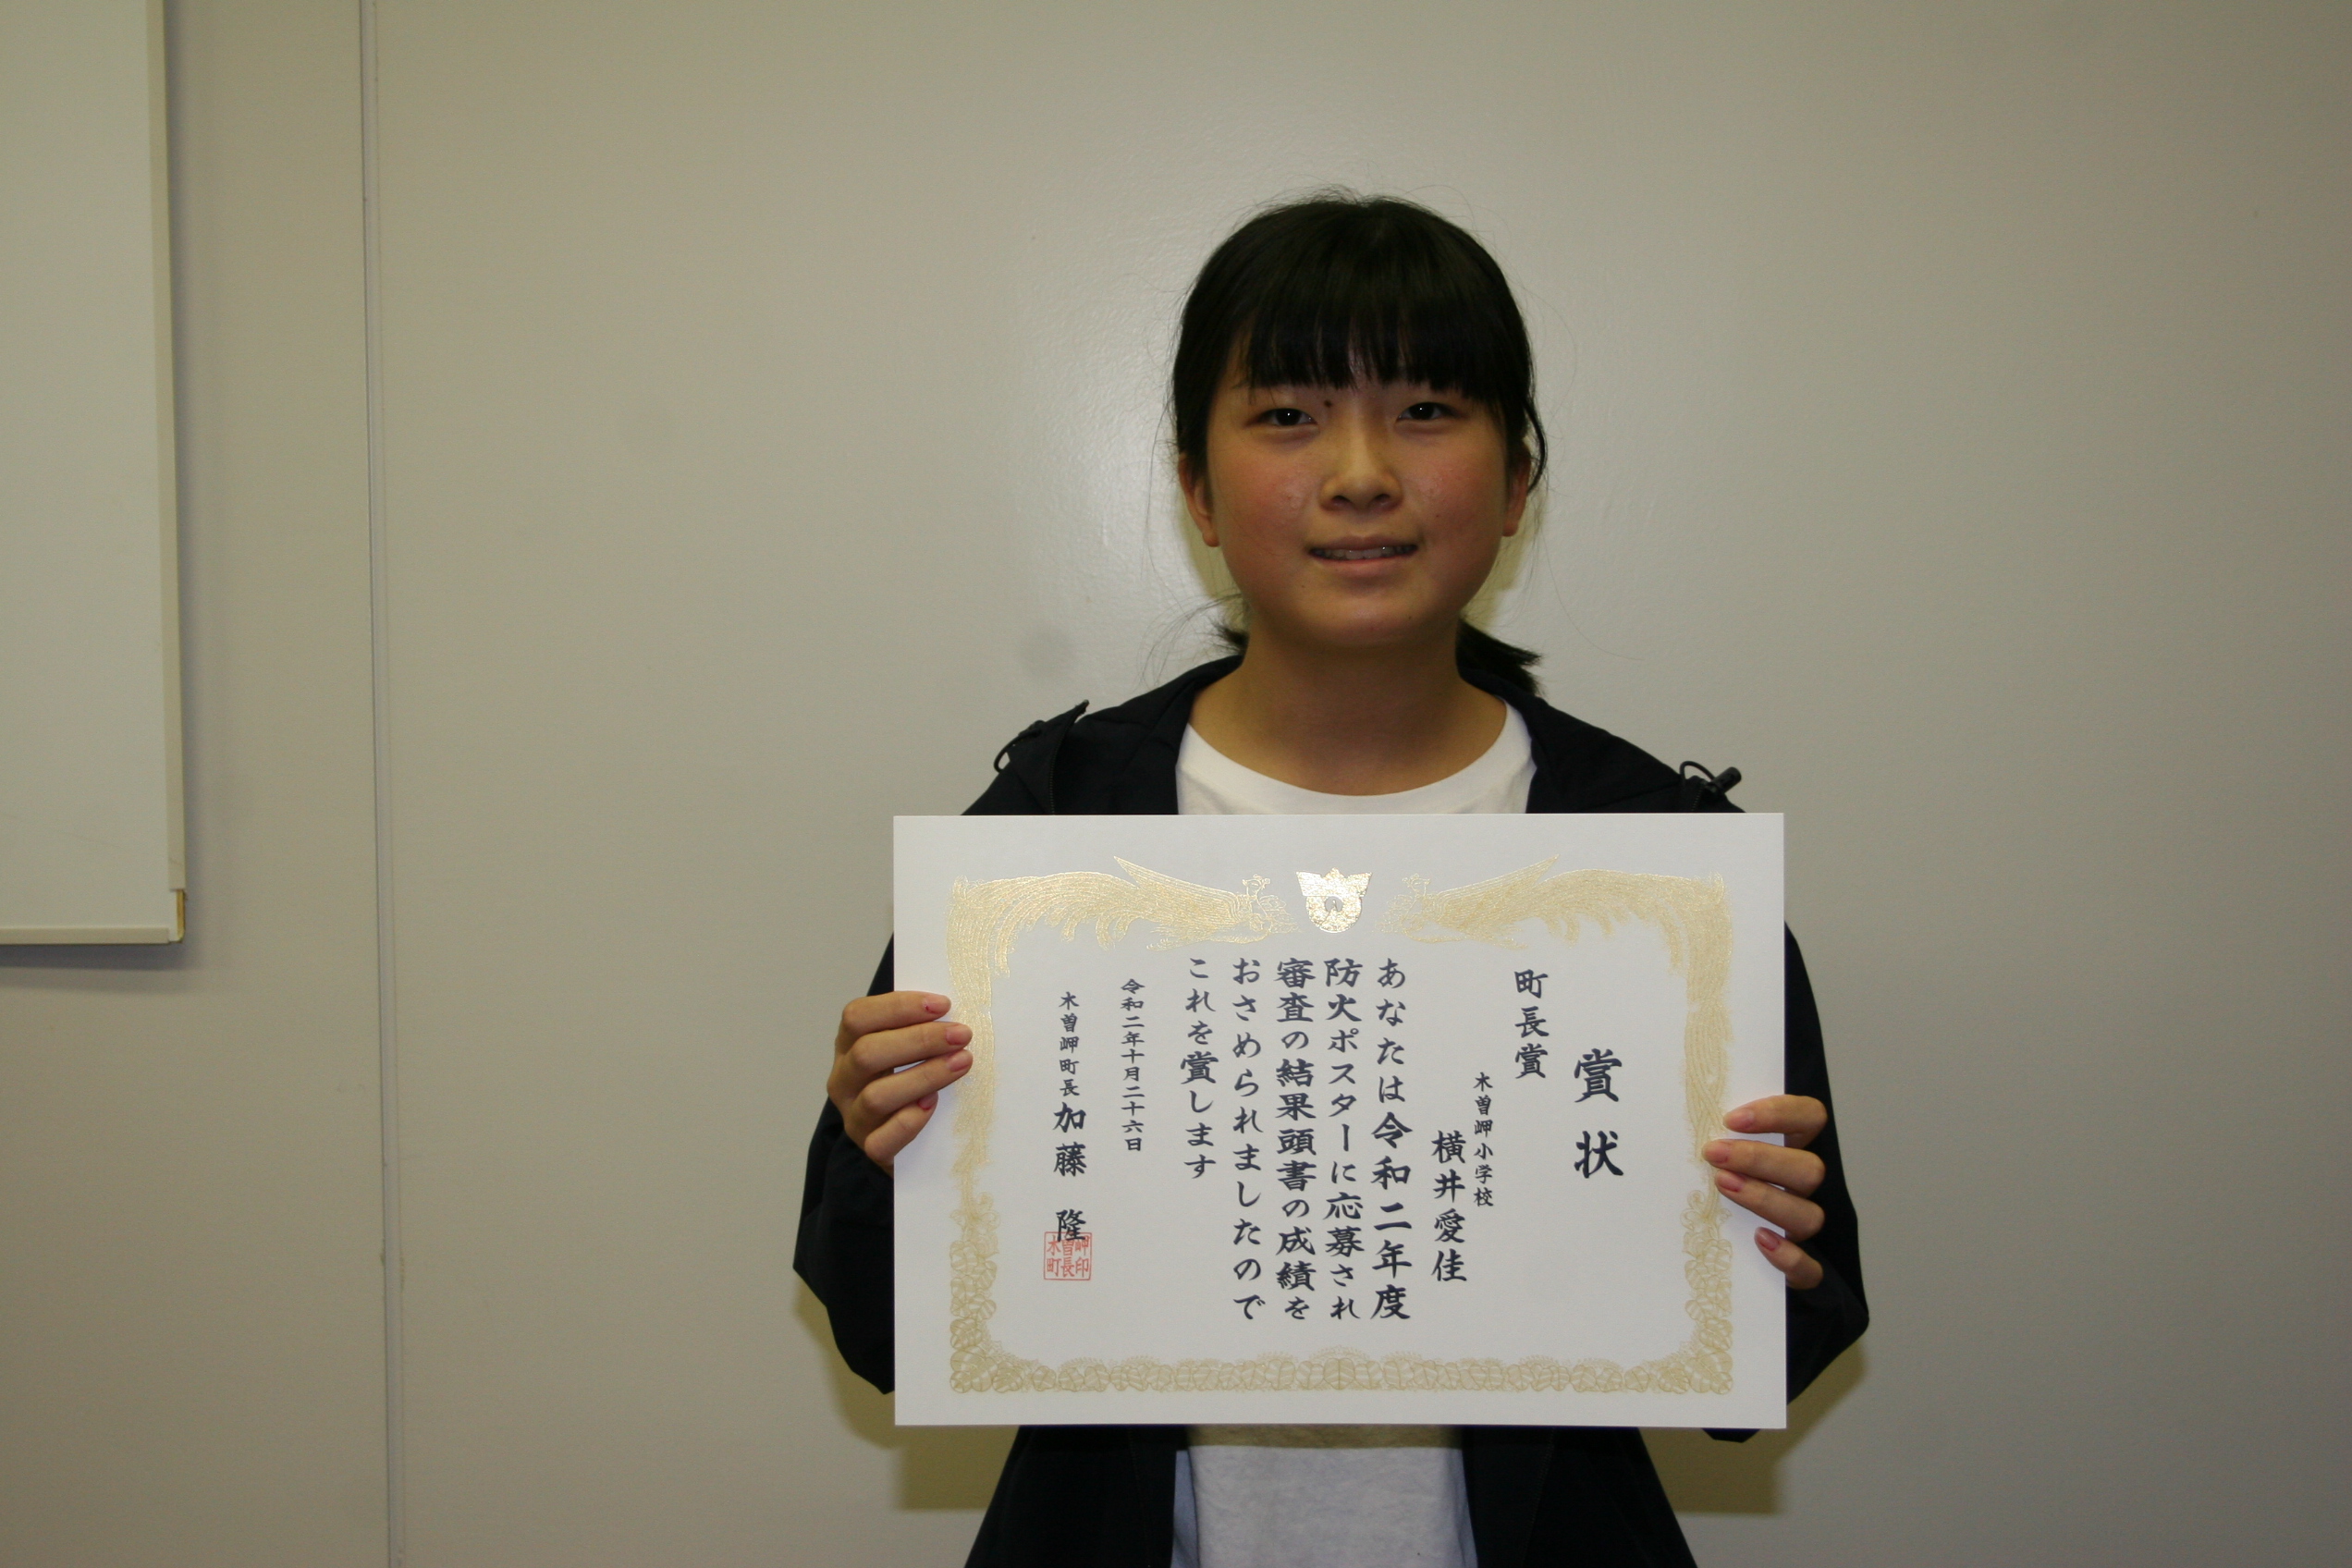 賞状
町長賞
木曽岬小学校
横井愛佳
あなたは令和二年度
防火ポスターに応募され
審査の結果頭書の成績を
おさめられましたので
これを賞します
令和二年十月二十六日
木曽岬町長 加藤 隆
木曽岬
町長印